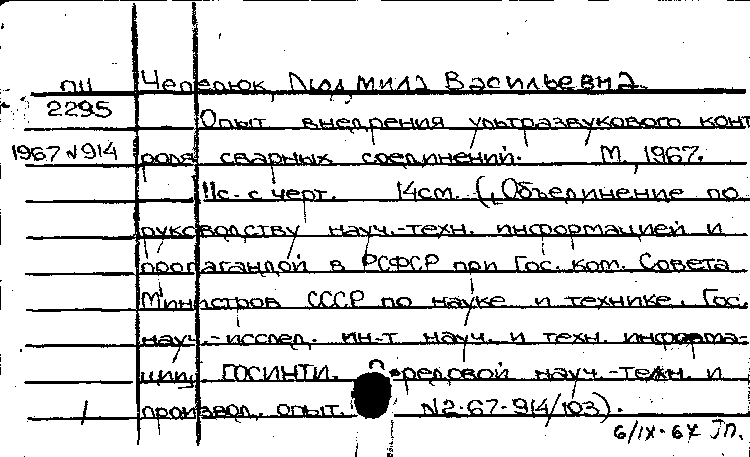 ПИ Черелюк, Людмила Васильевна.
2295 Опыт внедрения ультразвукового конт
1967 № 914 роля сварных соединений. М., 1967.
11с. с черт. 14см. („Объединение по
руководству науч.-техн. информацией и
пропагандой в РСФСР при Гос. ком. Совета
Министров СССР по науке и технике. Гос.
науч.-исслед. ин-т науч. и техн. информа-
ции. ГОСИНТИ. Передовой науч.-техн. и
1 произвол. опыт. №2-67-914/103).
6/IX-67